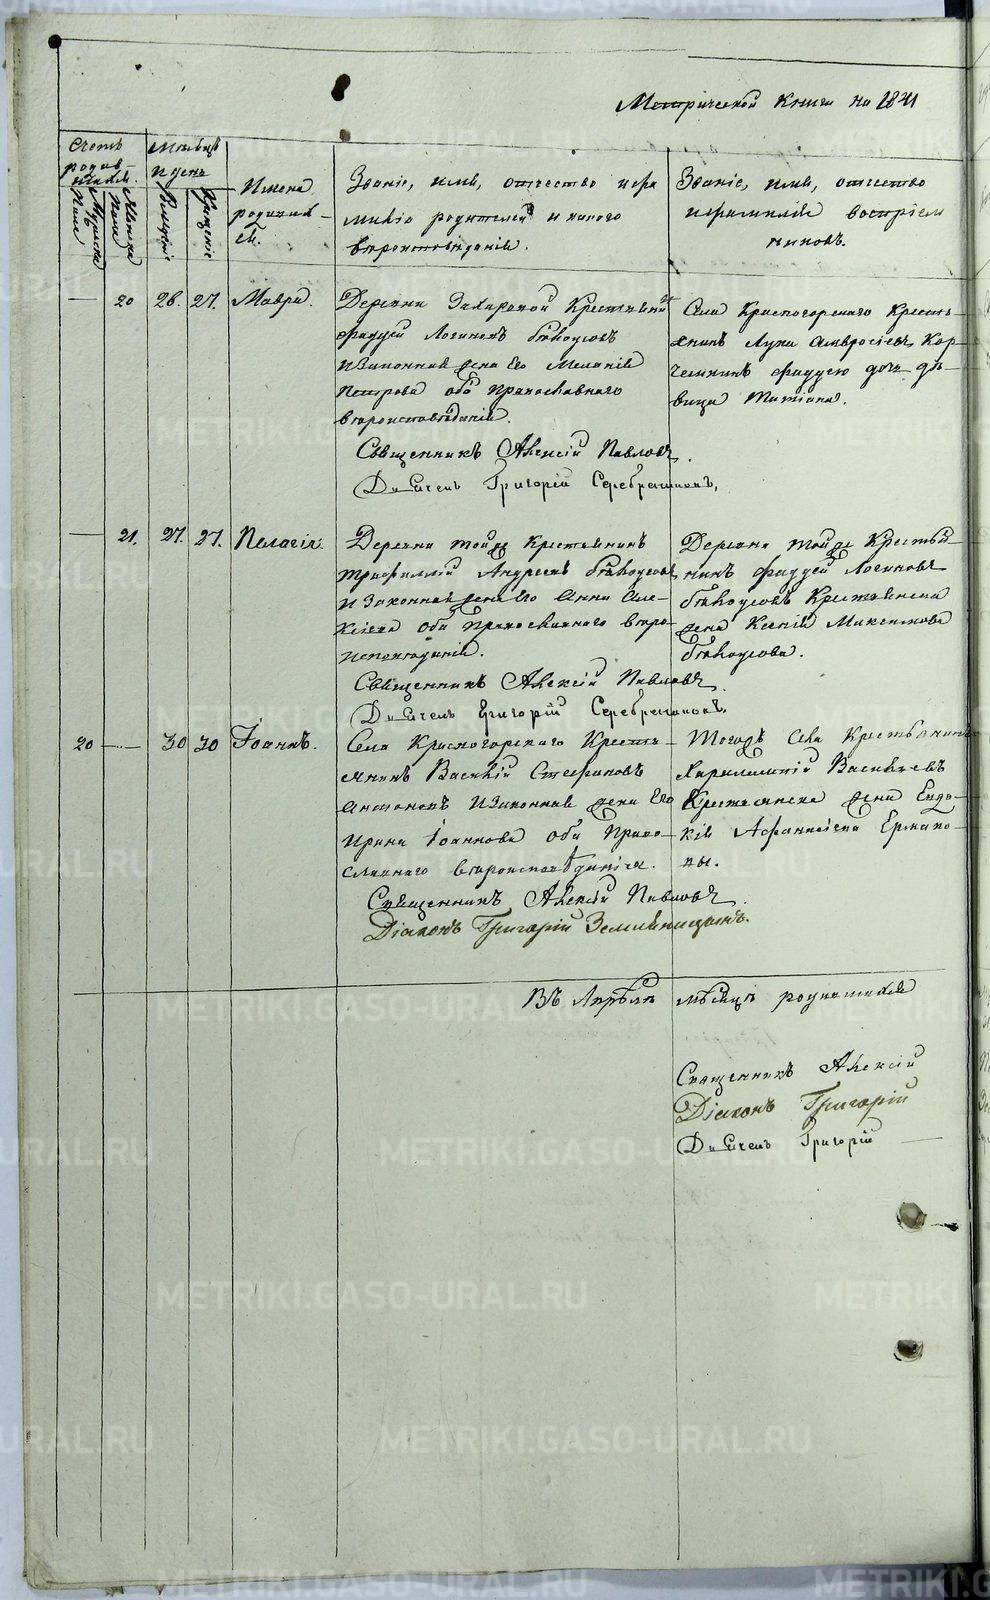 Метрической Книги на 1841
Счетъ родив-шихся.
Мужеска Пола
Женска Пола
Мѣсяцъ и день
Рожденіе
Крещеніе
Имена родивших-ся.
Званіе, имя, отчество и фа
милія родителей и какого
вѣроисповѣданія.
Званіе, имя, отчество
и фамилія воспріем
никовъ.
— 20 28. 27. Мавра.
Деревни Захаровой Крестьянинъ
Фаддей Логиновъ Бѣлоусовъ
и Законная жена Его Меланія
Петрова оба Православнаго
вѣроисповѣданія.
Священникъ Алексій Павловъ.
Дьячекъ Григорій Серебрениковъ,
Села Красногорскаго Кресть-
янинъ Лука Амвросіевъ Кор-
чемкинъ Фаддею дочь дѣ-
вица Татіана.
— 21. 27. 27. Пелагія.
Деревни той же Крестьянинъ
Трифиллій Андреевъ Бѣлоусовъ
и Законная жена Его Анна Але-
ксіева оба Православнаго вѣро-
исповѣданія.
Священникъ Алексій Павловъ.
Дьячекъ Григорій Серебрениковъ.
Деревни той же Крестья-
нинъ Фаддей Логиновъ
Бѣлоусовъ Крестьянская
жена Ксенія Максимова
Бѣлоусова.
20 — 30 30 Іоаннъ.
Села Красногорскаго Кресть-
янинъ Василій Стефановъ
Антоновъ и Законная жена Его
Ирина Іоаннова оба Право-
славнаго вѣроисповѣданія.
Священникъ Алексій Павловъ.
Діаконъ Григорій Земляницынъ.
Тогожъ Села Крестьянинъ
Харлампій Васильевъ
Крестьянска жена Евдо-
кія Афанасіева Ермако-
вы.
Въ Апрѣлѣ мѣсяцѣ родившихся
Священникъ Алексій
Діаконъ Григорій
Дьячекъ Григорій —
METRIKI.GASO-URAL.RU